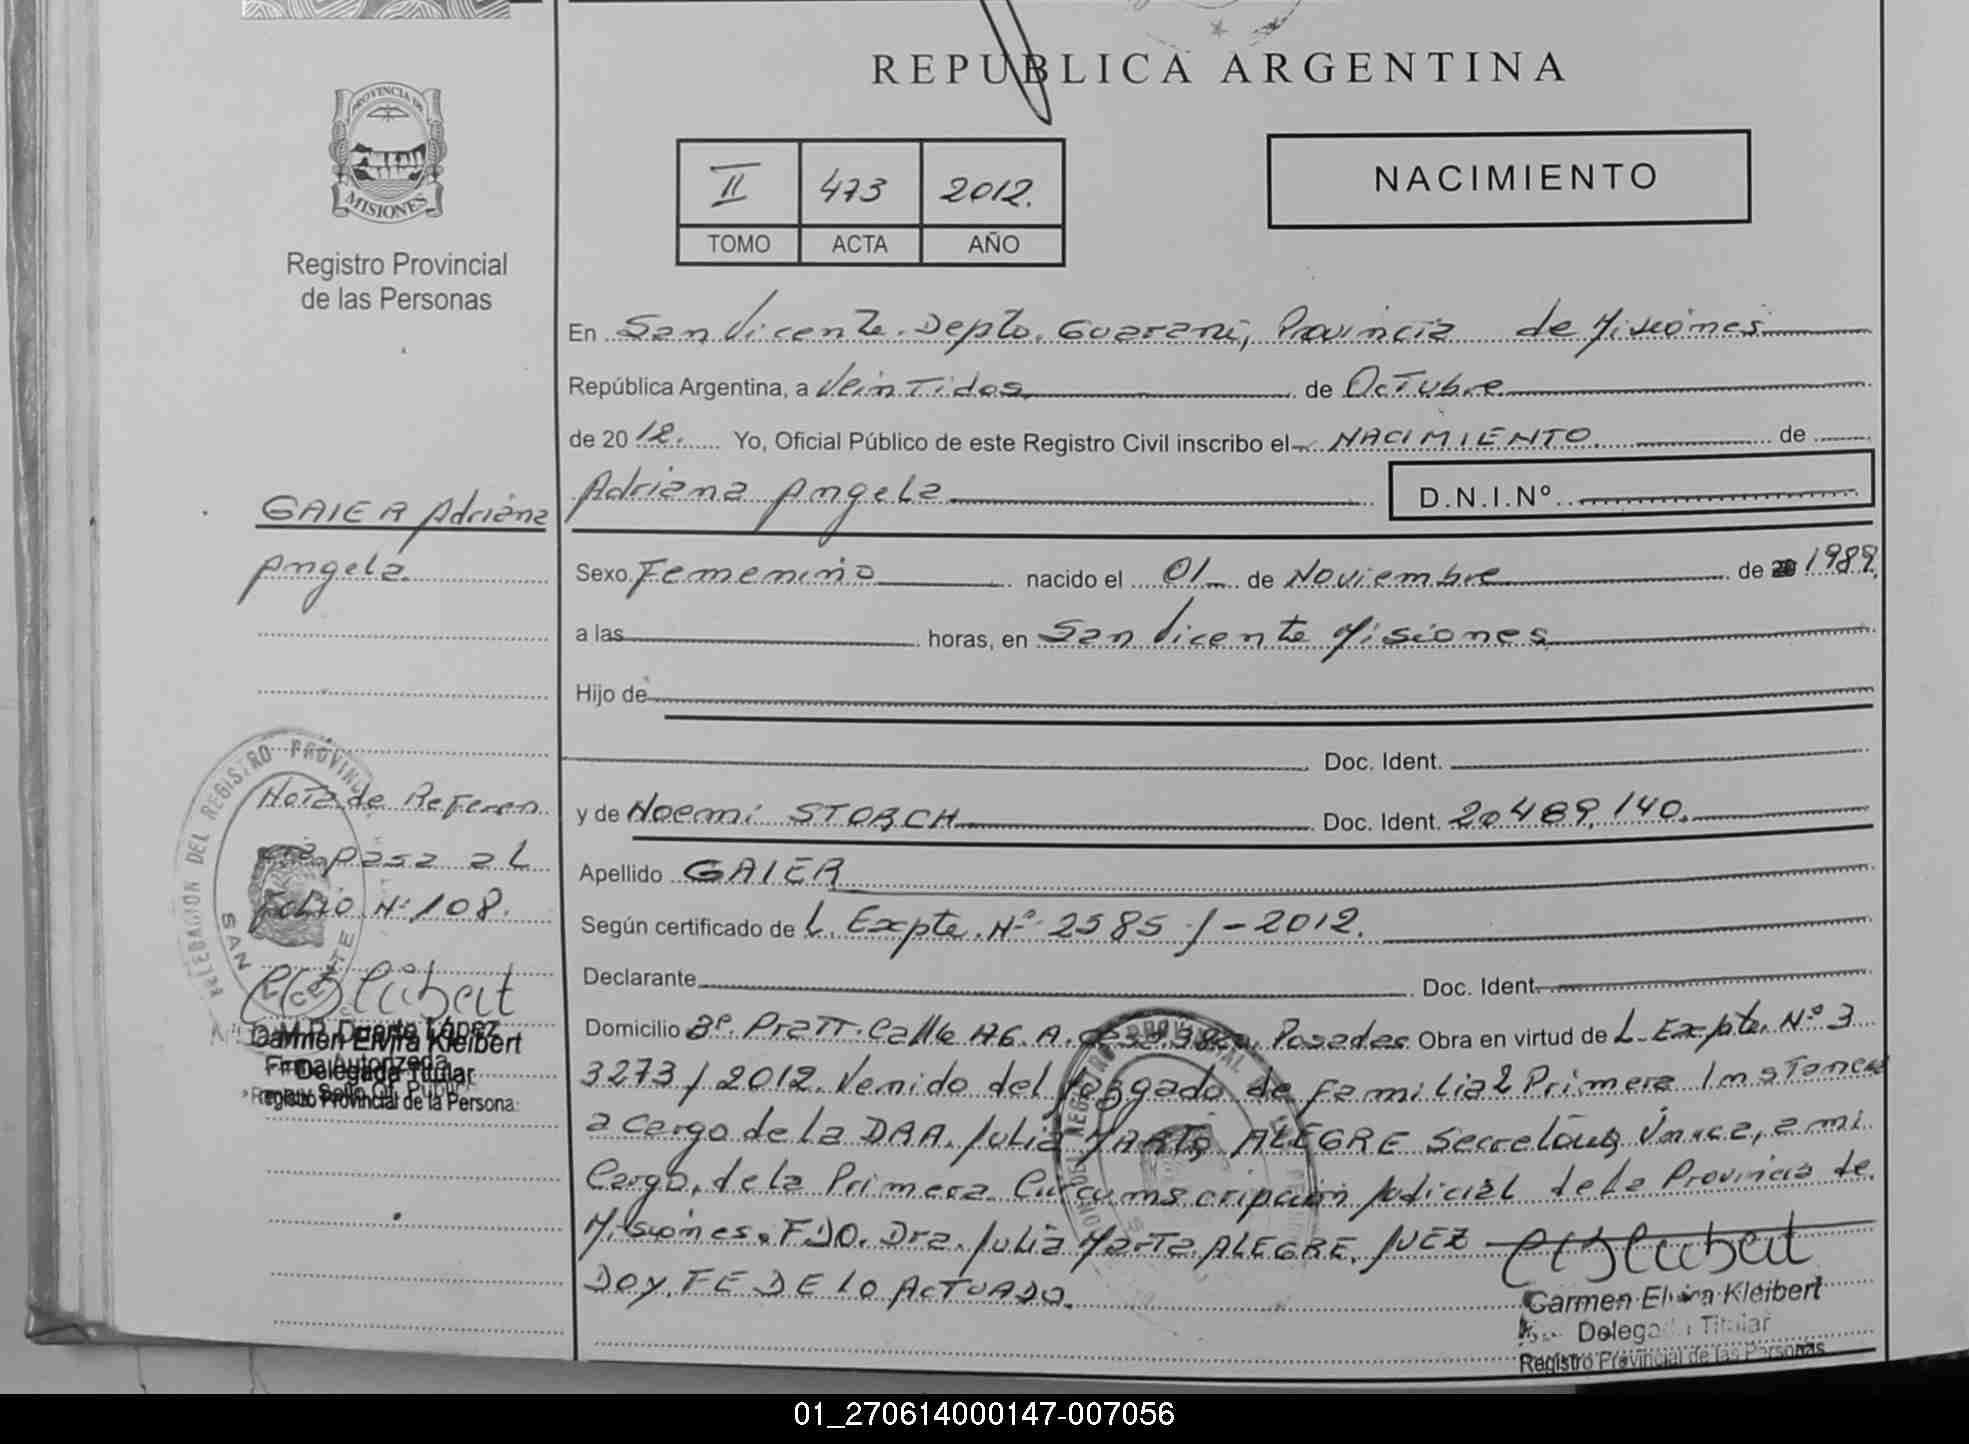 REPUBLICA ARGENTINA
PROVINCIA DE
MISIONES
Registro Provincial
de las Personas
II 473 2012.
TOMO ACTA AÑO
NACIMIENTO
En San Vicente. Depto. Guarani, Provincia de Misiones
República Argentina, a VeinTidos de OcTubre
de 2012. Yo, Oficial Público de este Registro Civil inscribo el NACIMIENTO. de
Adriana Angela D.N.I.Nº
GAIER Adriana
Angela.
Sexo Femenino nacido el 01 de Noviembre de 20 1989.
a las horas, en San Vicente Misiones
Hijo de
Doc. Ident.
y de Noemi STORCH Doc. Ident. 20489.140.
Apellido GAIER
Según certificado de L. Expte. Nº 2585 /-2012.
Declarante Doc. Ident.
Domicilio Bº. Pratt. Calle 76. A. Posadas. Obra en virtud de L. Expte. Nº 3
3273/2012. Venido del Juzgado de Familia 2 Primera Instancia
a Cargo de la DRA. Julia MARTA ALEGRE Secretaria Unica, a mi
Cargo, de la Primera Circumscripción Judicial de la Provincia de
Misiones. FDO. Dra. Julia Marta ALEGRE. JUEZ
DOY. FE DE LO ACTUADO.
Carmen Elvira Kleibert
Delegada Titular
Registro Provincial de las Personas
DELEGACION DEL REGISTRO PROVINCIAL
SAN VICENTE
Nota de Referen
cia pasa al
Folio Nº 108.
Carmen Elvira Kleibert
Delegada Titular
Registro Provincial de la Persona
01_270614000147-007056